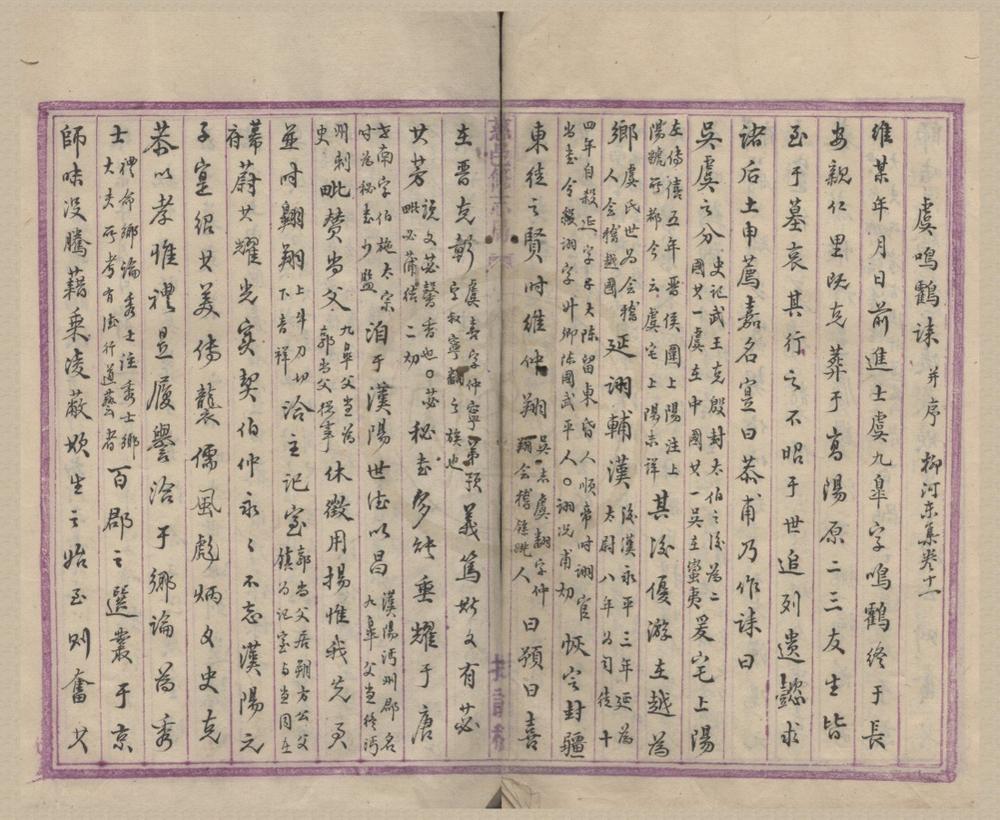 虞鳴鶴誄 并序 柳河東集卷十一
維某年月日前進士虞九皋字鳴鶴終于長
安親仁里既克葬于高陽原二三友生皆
至于墓哀其行之不昭于世追列遺懿求
諸后土申薦嘉名寔曰恭甫乃作誄曰
吳虞之分 史記武王克殷封太伯之後為二國其一虞在中國其一吳在蠻夷 爰宅上陽
左傳僖五年晉侯圍上陽注上陽虢所都今云虞宅上陽未詳 其後優游在越為
鄉 虞氏世為會稽人會稽越國 延詡輔漢 後漢永平三年延為太尉八年為司徒十
四年自殺延字子大陳留東昏人順帝時詡官尚書令 詡字升卿陳國武平人○詡況甫切 恢定封疆
東徒之賢時維仲翔 吳志虞翻字仲翔會稽餘姚人 曰預曰喜
在晉克彰 虞喜字仲寧弟預字叔寧翻之族也 義篤斯文有苾
其芳 說文苾馨香也○苾毗必蒲結二切 秘書多能垂耀于唐
世南字伯施太宗時為秘書少監 洎于漢陽世德以昌 漢陽沔州郡名九皋父當終沔
州刺史 毗贊尚父 九皋父當為郭尚父從事 休徵用揚惟我先君
並時翱翔 上牛刀切下音祥 洽主記室 郭尚父居朔方公父鎮為記室與當同在
幕府 蔚其耀光實契伯仲永永不忘漢陽元
子寔紹其美傳襲儒風彪炳文史克
恭以孝惟禮是履譽洽于鄉論為秀
士 禮命鄉論秀士注秀士鄉大夫所考有德行道藝者 百郡之選叢于京
師味沒騰藉乘凌蔽欺生之始至則奮其